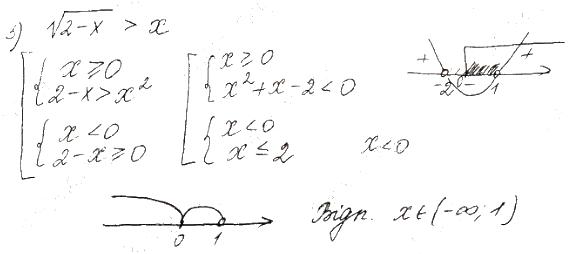 3) √(2-x) > x
[ { x ≥ 0
2-x > x²
{ x < 0
2-x ≥ 0
[ { x ≥ 0
x² + x - 2 < 0
{ x < 0
x ≤ 2
x < 0
+ - +
-2 1
0 1
Відп. x ∈ (-∞; 1)